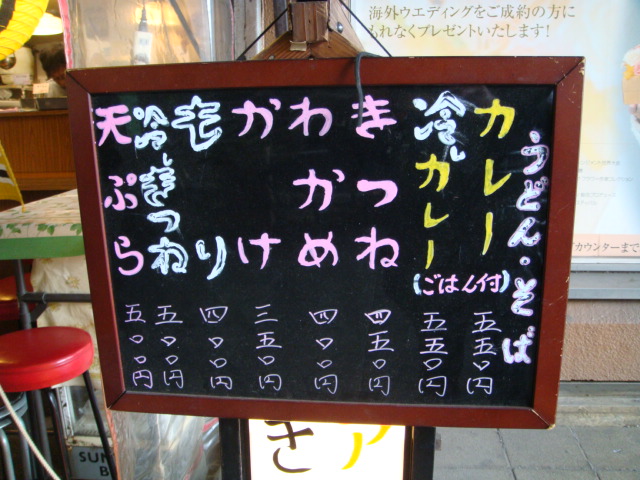 海外ウエディングをご成約の方に
もれなくプレゼントいたします!
うどん・そば
カレー 五五〇円
冷しカレー 五五〇円
(ごはん付)
きつね 四五〇円
わかめ 四〇〇円
かけ 三五〇円
もり 四〇〇円
冷しきつね 五〇〇円
天ぷら 五〇〇円
カウンターまで
SUN